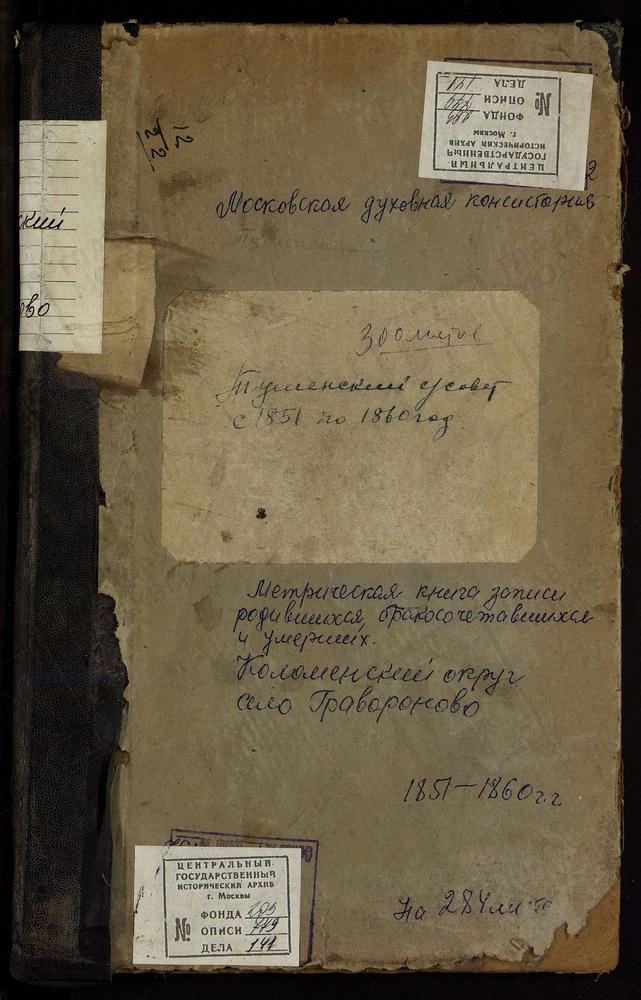 ЦЕНТРАЛЬНЫЙ
ГОСУДАРСТВЕННЫЙ
ИСТОРИЧЕСКИЙ АРХИВ
г. Москвы
№ ФОНДА 203
ОПИСИ 779
ДЕЛА 141
ский
ово
Московская духовная консистория
300 листов
Туменский с/совет
с 1851 по 1860 год.
Метрическая книга записи
родившихся, бракосочетавшихся
и умерших.
Коломенский округ
село Гравороново
1851-1860 г.г
На 284
ЦЕНТРАЛЬНЫЙ
ГОСУДАРСТВЕННЫЙ
ИСТОРИЧЕСКИЙ АРХИВ
г. Москвы
№ ФОНДА 203
ОПИСИ 779
ДЕЛА 141